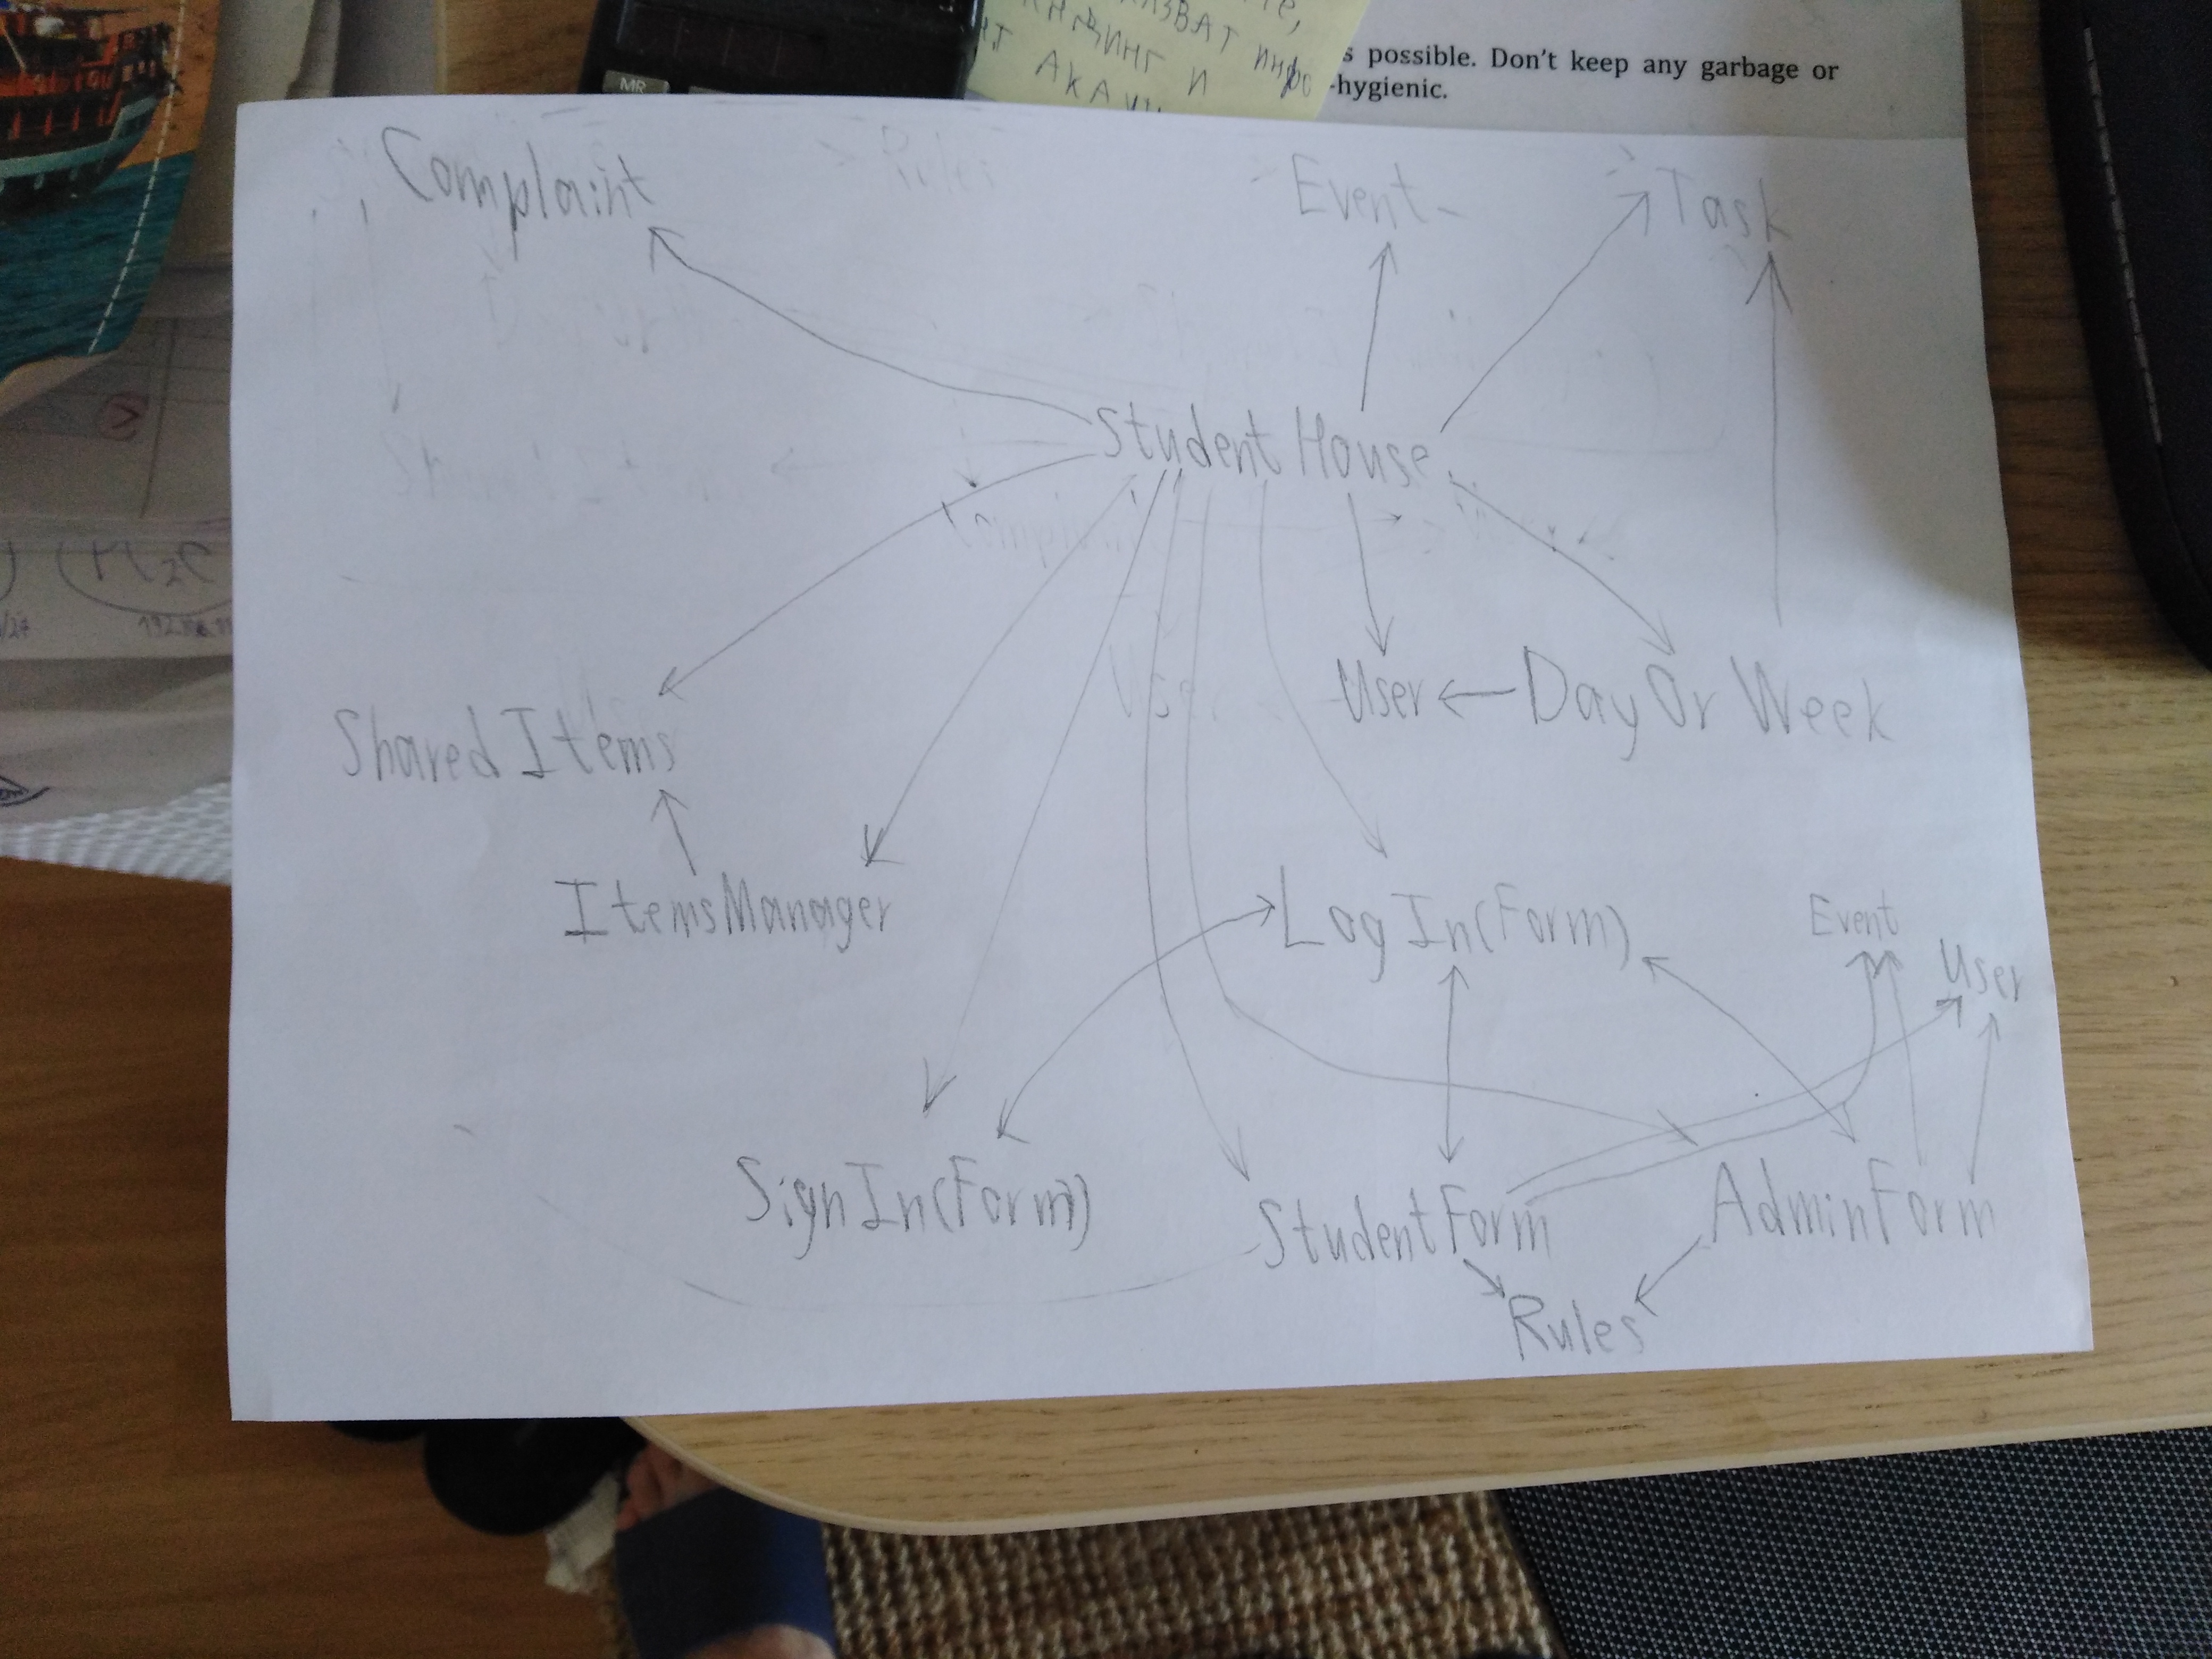 MR
АКАУН
s possible. Don't keep any garbage or
-hygienic.
Complaint
Rules
Event
Task
Student House
Complaint
User
User
Day Or Week
Shared Items
ItemsManager
Log In(Form)
Event
User
Sign In(Form)
StudentForm
AdminForm
Rules